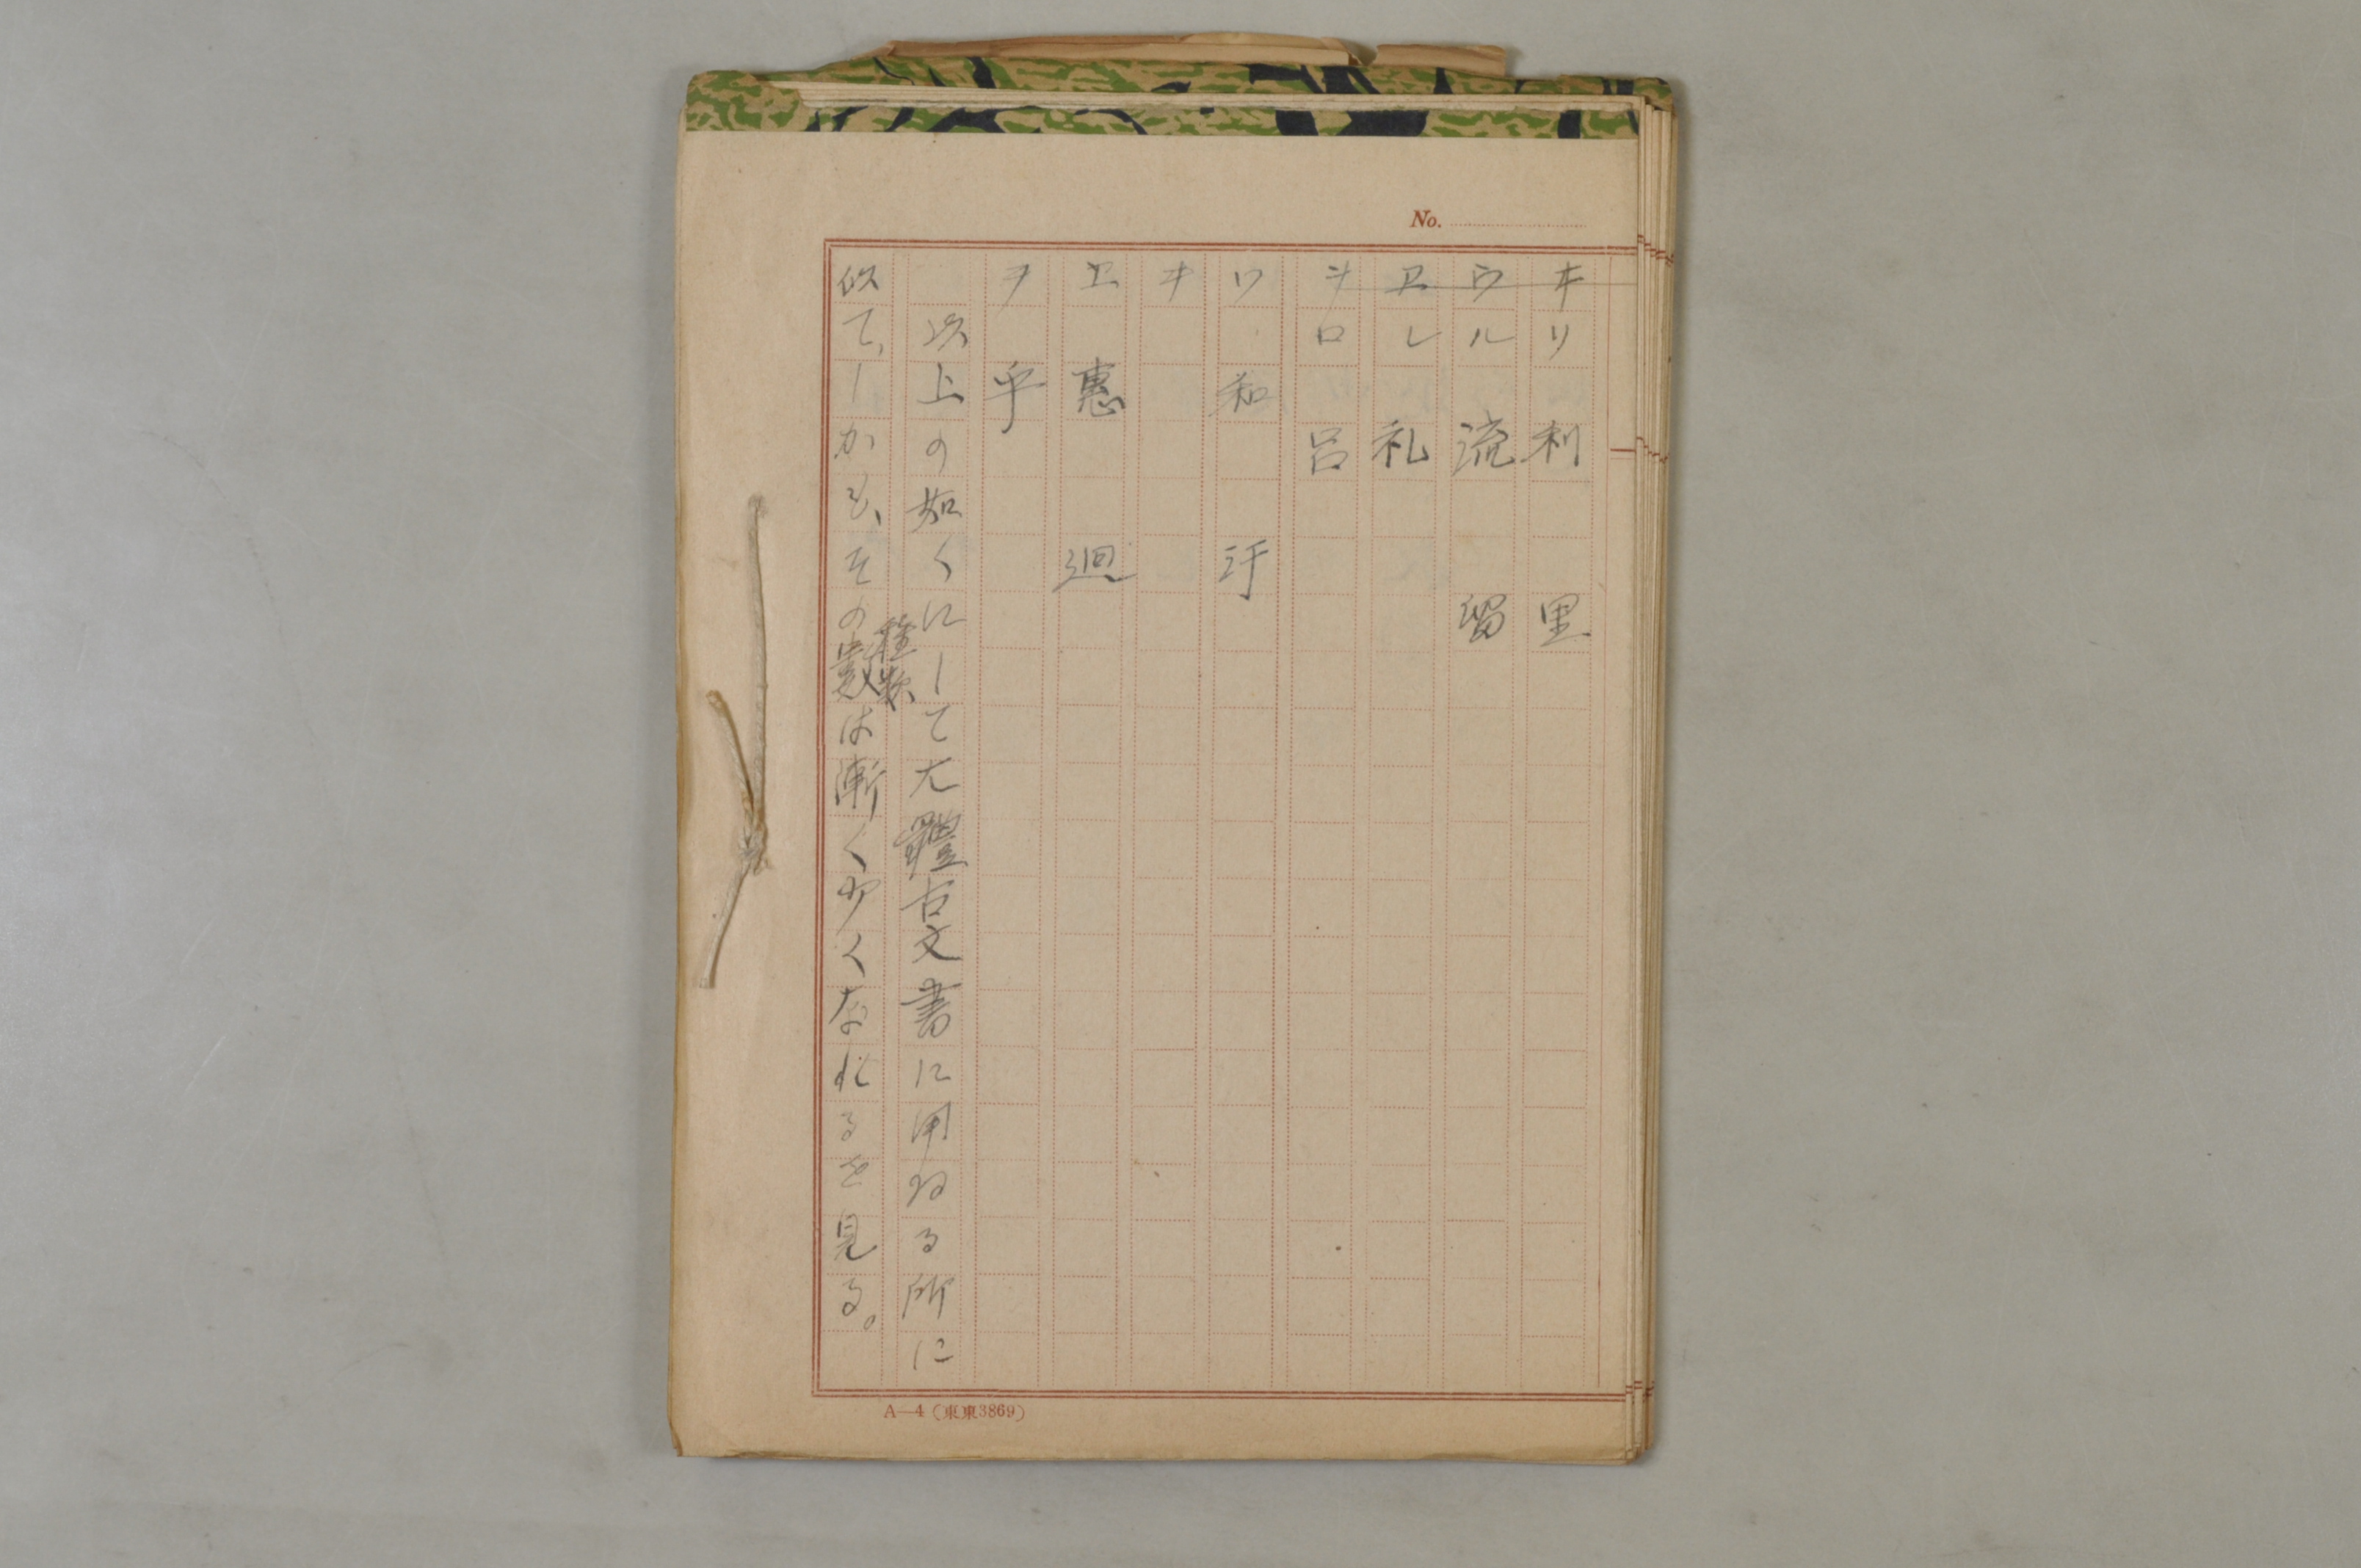 No.
ヰ リ 利 里
ウ ル 流 留
ヱ レ 礼
ヲ ロ 呂
ワ 和 汙
ヰ
ヱ 惠 廻
ヲ 乎
以上の如くにして大體古文書に用ゐる所に
種類
似て、しかも、その數は漸く少くなれるを見る。
A—4(東東3869)